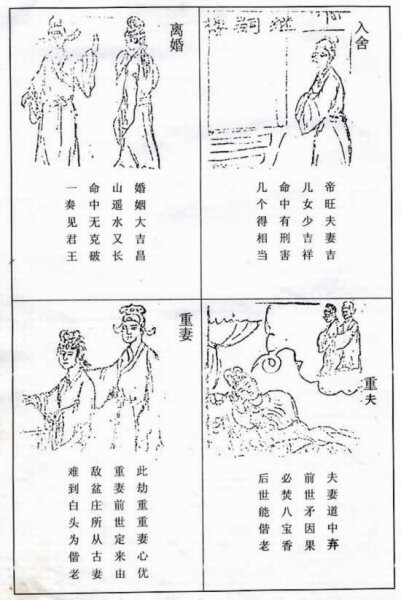 入舍
帝旺夫妻吉
儿女少吉祥
命中有刑害
几个得相当
离婚
婚姻大吉昌
山遥水又长
命中无克破
一奏见君王
重夫
夫妻道中弃
前世矛因果
必焚八宝香
后世能偕老
重妻
此劫重重妻心优
重妻前世定来由
敌盆庄所从古妻
难到白头为偕老